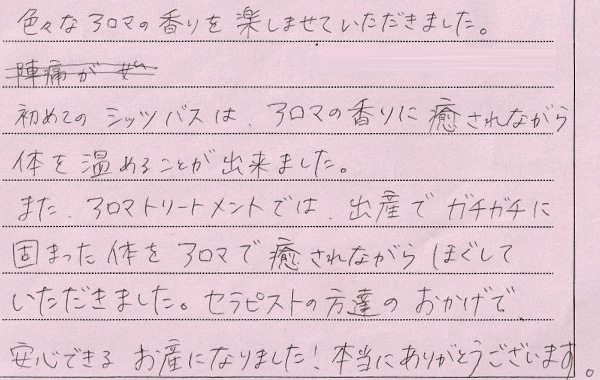 色々なアロマの香りを楽しませていただきました。
陣痛が
初めてのシッツバスは、アロマの香りに癒されながら
体を温めることが出来ました。
また、アロマトリートメントでは、出産でガチガチに
固まった体をアロマで癒されながらほぐして
いただきました。セラピストの方達のおかげで
安心できるお産になりました!本当にありがとうございます。